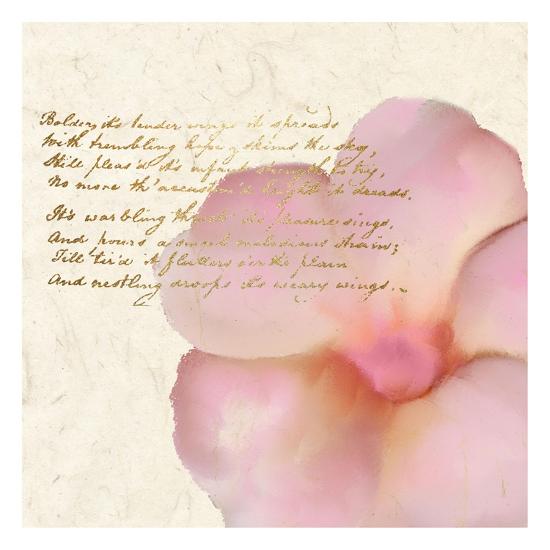 Bolder, it's tender wings it spreads
With trembling hope, & skims the sky,
Still pleas'd it's infant strength to try,
No more th' accustom'd height it dreads.
It's warbling throat it's pleasure sings,
And pours a sweet melodious strain;
Till tir'd it flutters o'er the plain
And nestling droops its weary wings.